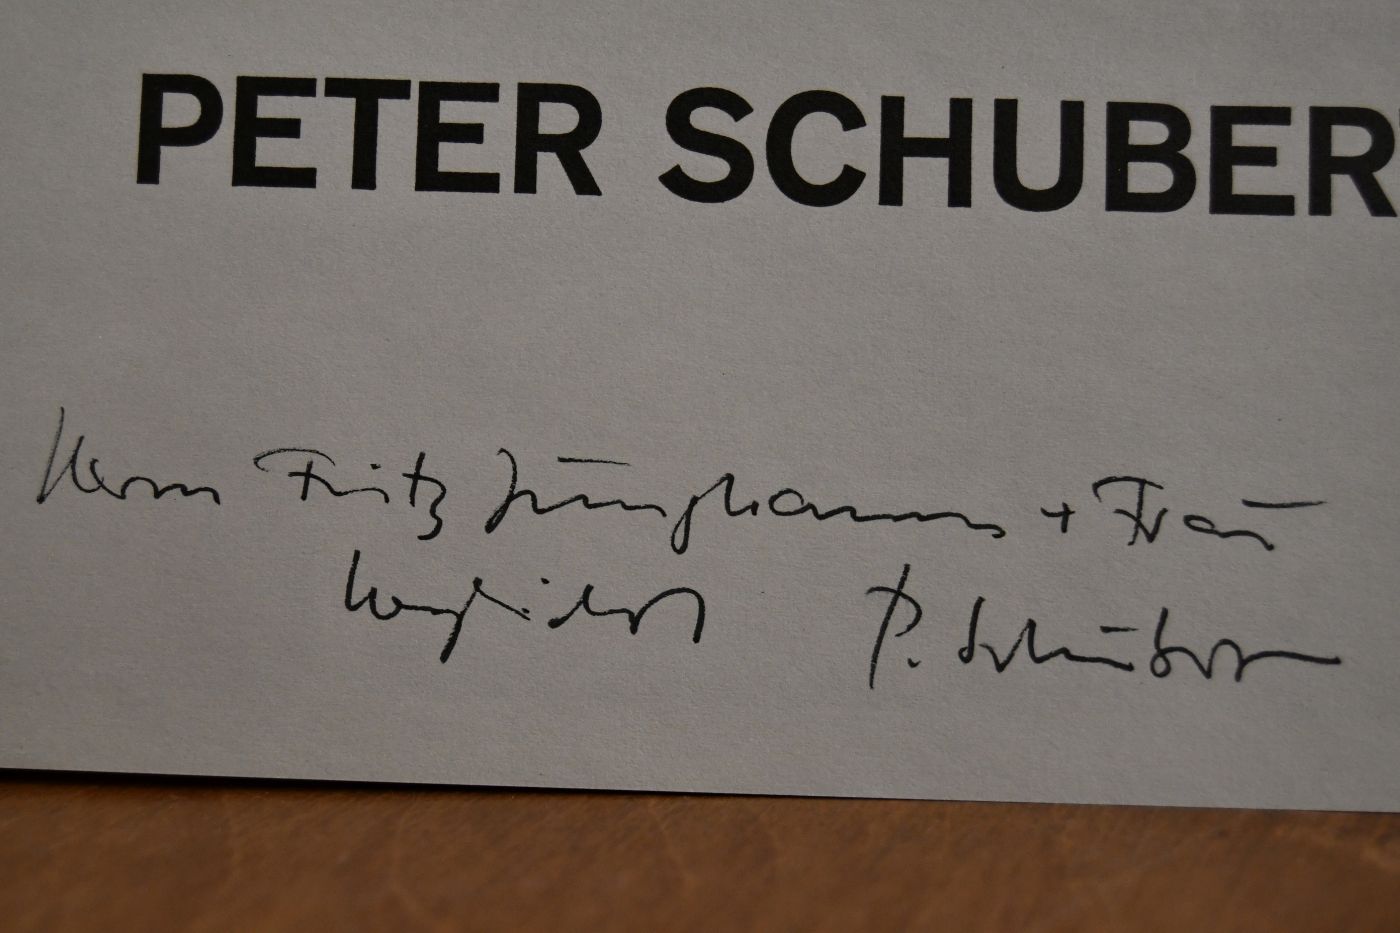 PETER SCHUBER
Herrn Fritz Junghanns + Frau
herzlichst P. Schubert